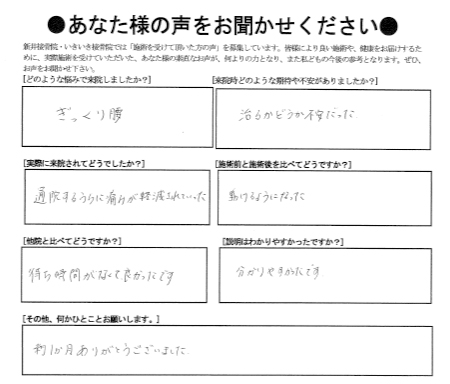 ●あなた様の声をお聞かせください●
新井接骨院・いきいき接骨院では「施術を受けて頂いた方の声」を募集しています。皆様により良い施術や、健康をお届けするた
めに、実際施術を受けていただいた、あなた様の素直なお声が、何よりの力となり、また私どもの今後の参考となります。ぜひ、
お声をお聞かせ下さい。
[どのような悩みで来院しましたか?]
ぎっくり腰
[来院時どのような期待や不安がありましたか?]
治るかどうか不安だった
[実際に来院されてどうでしたか?]
通院するうちに痛みが軽減されていった
[施術前と施術後を比べてどうですか?]
動けるようになった
[他院と比べてどうですか?]
待ち時間がなくて良かったです
[説明はわかりやすかったですか?]
分かりやすかったです
[その他、何かひとことお願いします。]
約1か月ありがとうございました